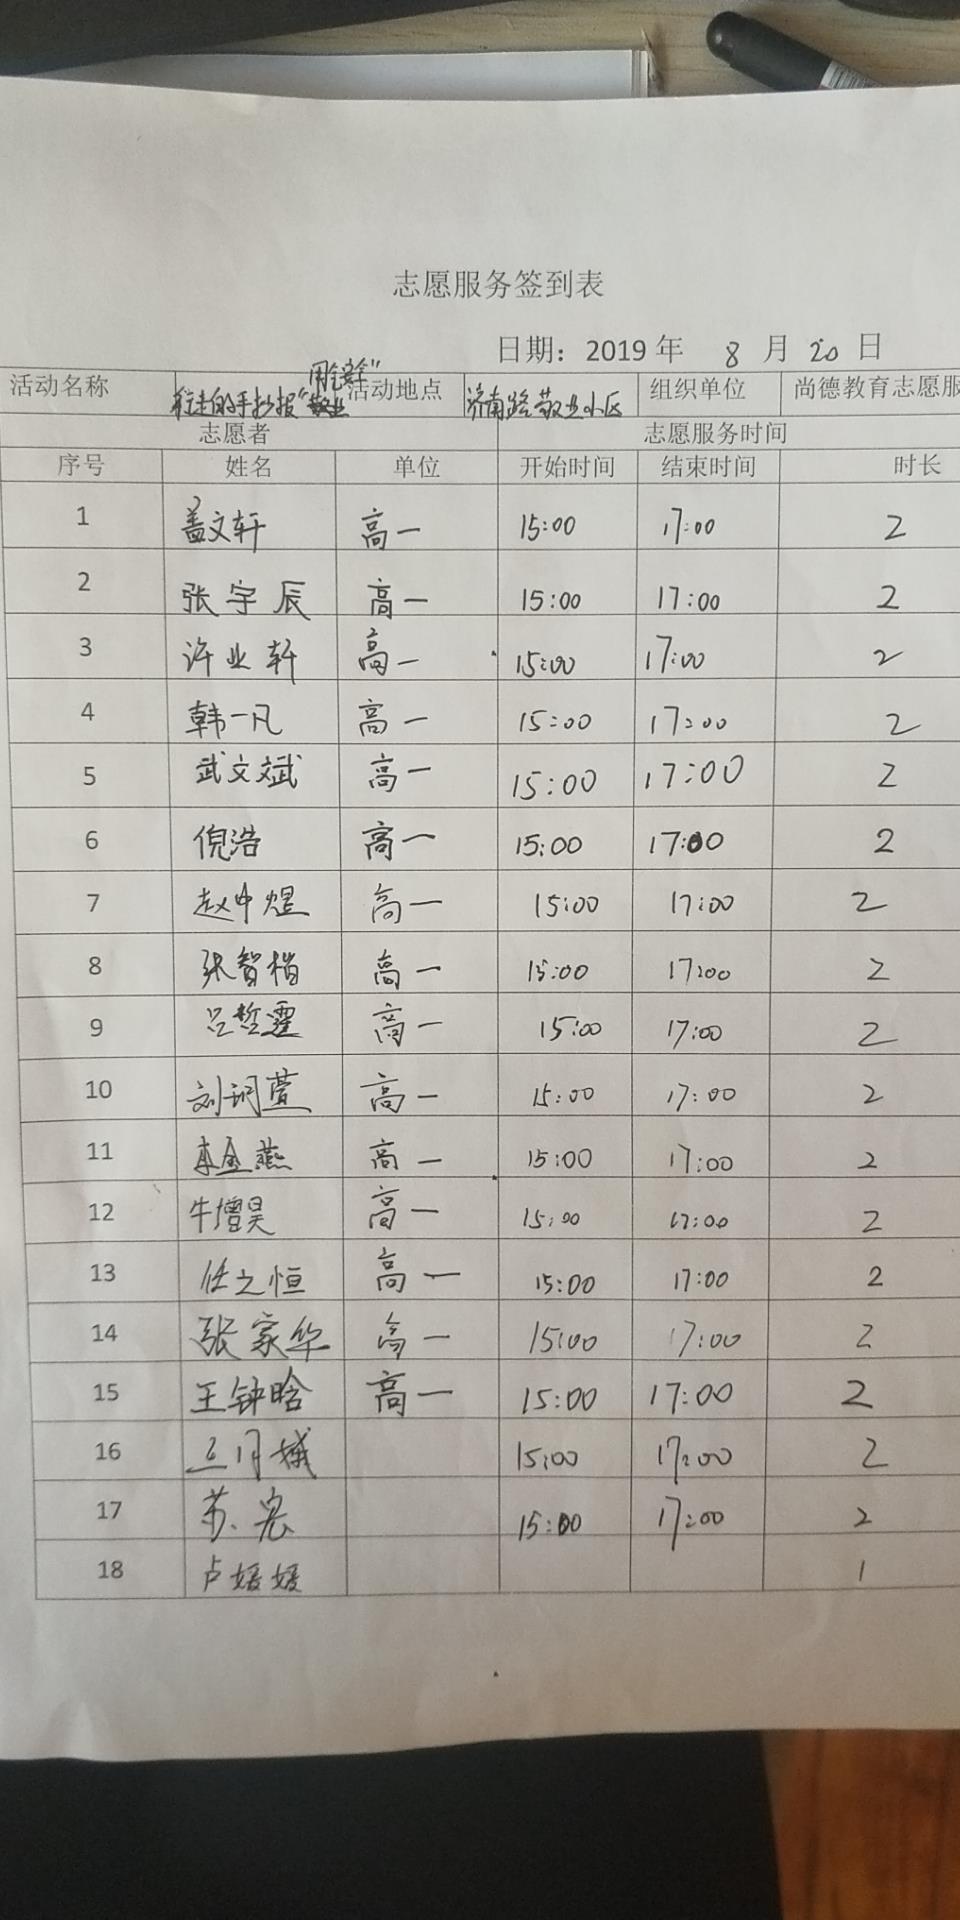 志愿服务签到表
日期：2019 年 8 月 20 日
活动名称 行走的手抄报 活动地点 济南路敬业小区 组织单位 尚德教育志愿服
志愿者 志愿服务时间
序号 姓名 单位 开始时间 结束时间 时长
1 盖文轩 高一 15:00 17:00 2
2 张宇辰 高一 15:00 17:00 2
3 许业轩 高一 15:00 17:00 2
4 韩一凡 高一 15:00 17:00 2
5 武文斌 高一 15:00 17:00 2
6 倪浩 高一 15:00 17:00 2
7 赵中煜 高一 15:00 17:00 2
8 张智楷 高一 15:00 17:00 2
9 吕哲霆 高一 15:00 17:00 2
10 刘珂萱 高一 15:00 17:00 2
11 李金燕 高一 15:00 17:00 2
12 牛增昊 高一 15:00 17:00 2
13 任之恒 高一 15:00 17:00 2
14 张家华 高一 15:00 17:00 2
15 王钟晗 高一 15:00 17:00 2
16 15:00 17:00 2
17 苏宏 15:00 17:00 2
18 卢媛媛 1